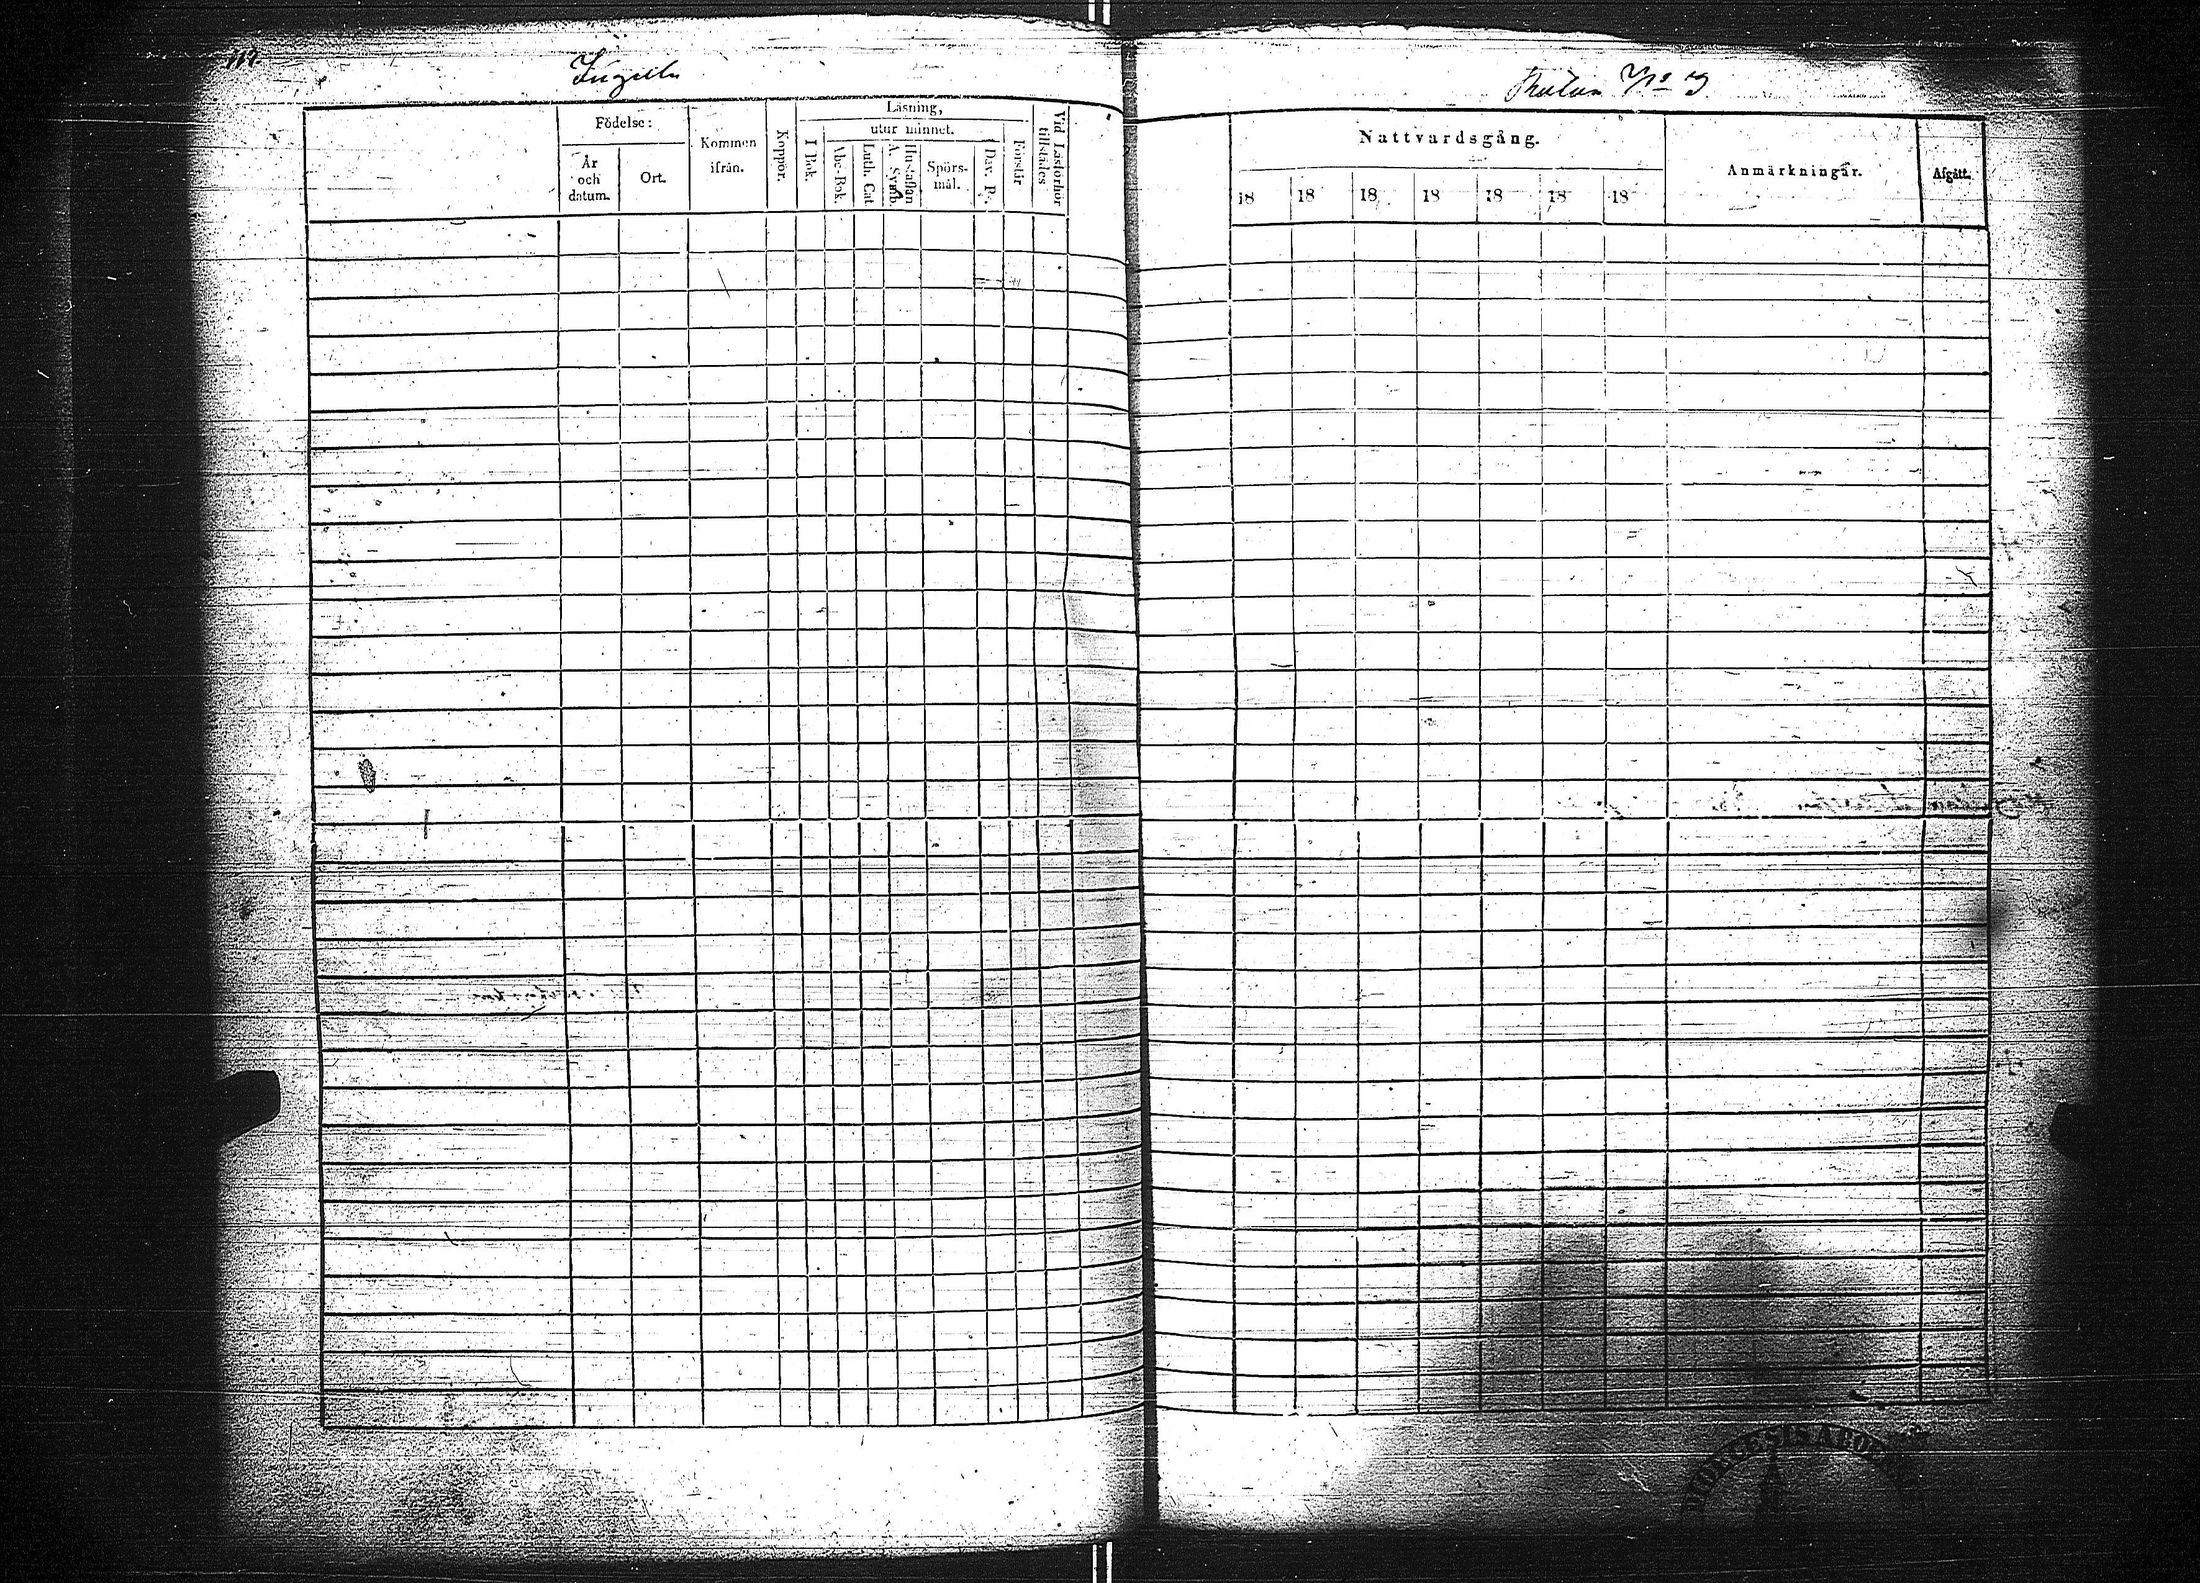 Läsning,
Födelse:
utur minnet.
Kommen ifrån.
Koppor.
I Bok.
Abc-Bok.
Luth. Cat.
Hustaflan A. Symb.
Spörs-
mål.
Dav. Ps.
Förstår
Vid Läsförhör tillstädes
År
och
datum.
Ort.
No 3
Nattvardsgång.
Anmärkningar.
Afgått.
18 18 18 18 18 18 18